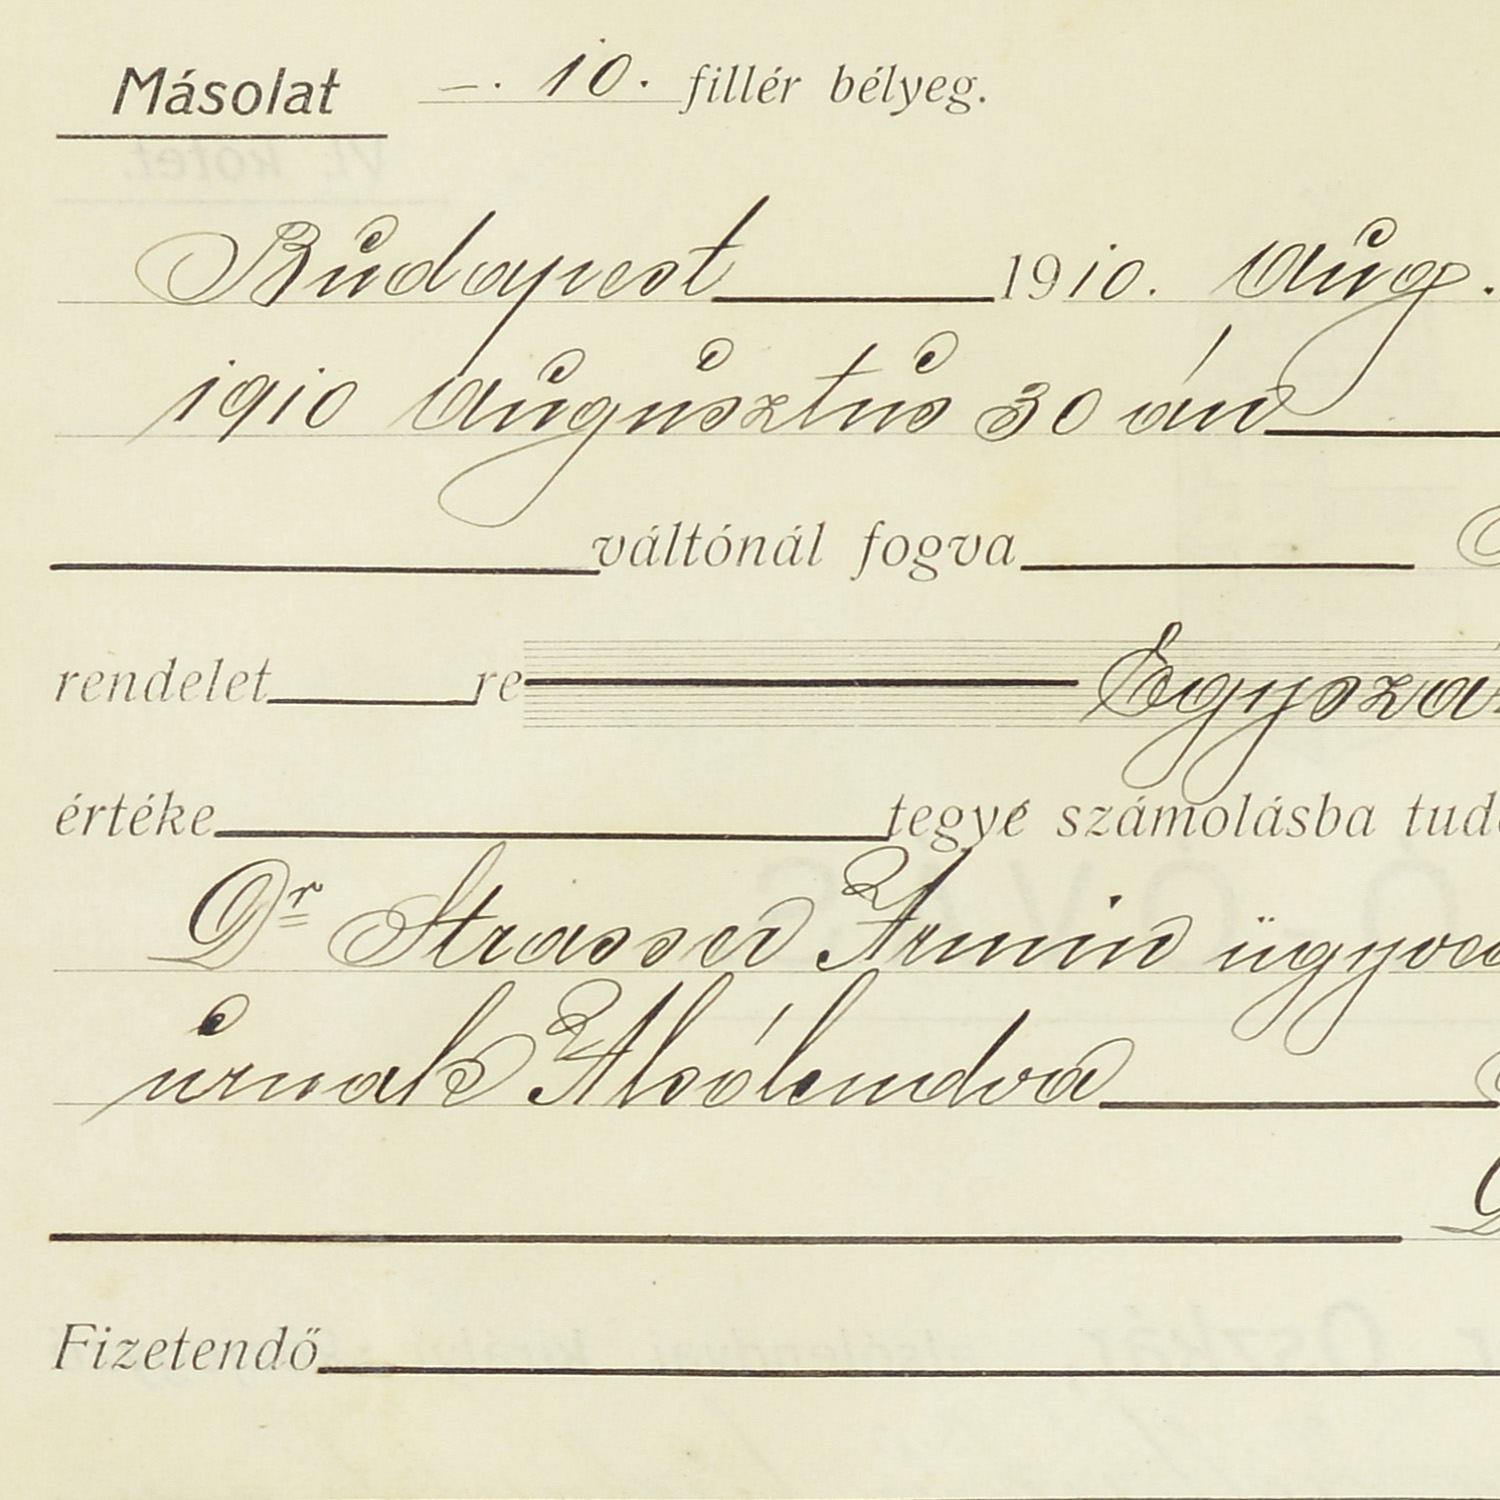 Másolat —. 10. fillér bélyeg.
Budapest 1910. Aug.
1910 Augusztus 30 án
váltónál fogva
rendelet re Egyszá
értéke tegye számolásba tud
Dr Strasser Ármin ügyvé
úrnak Alsólendva
Fizetendő